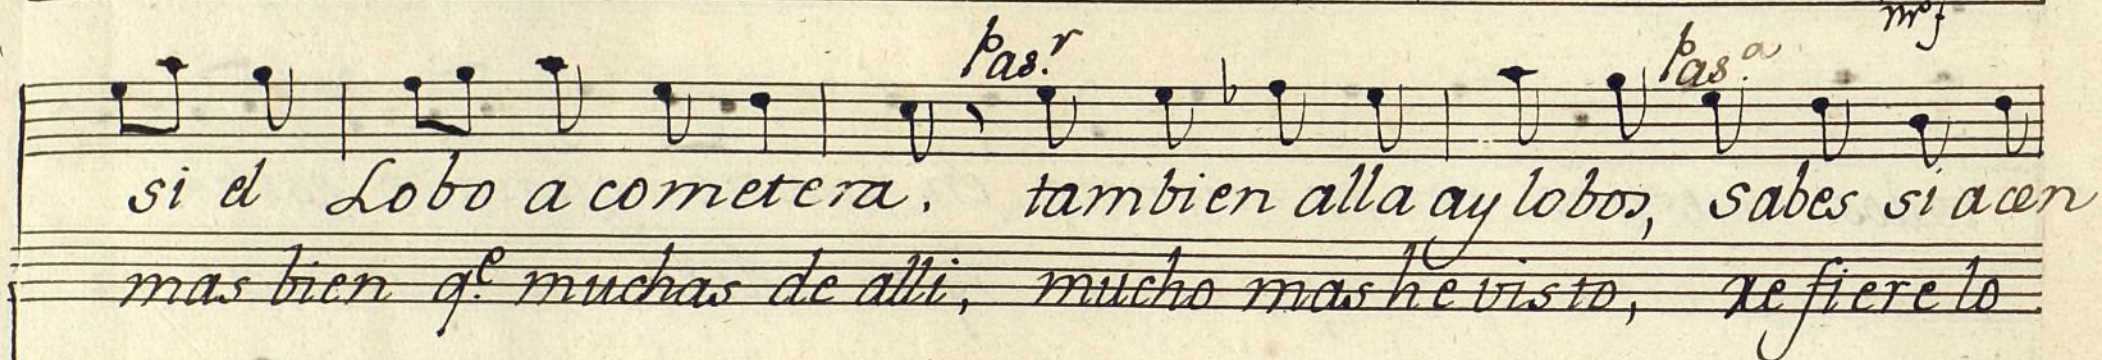 mo f
Pas.r Pas.a
si el Lobo a cometera. tambien alla ay lobos, sabes si acen
mas bien q.e muchas de alli, mucho mas he visto, refierelo